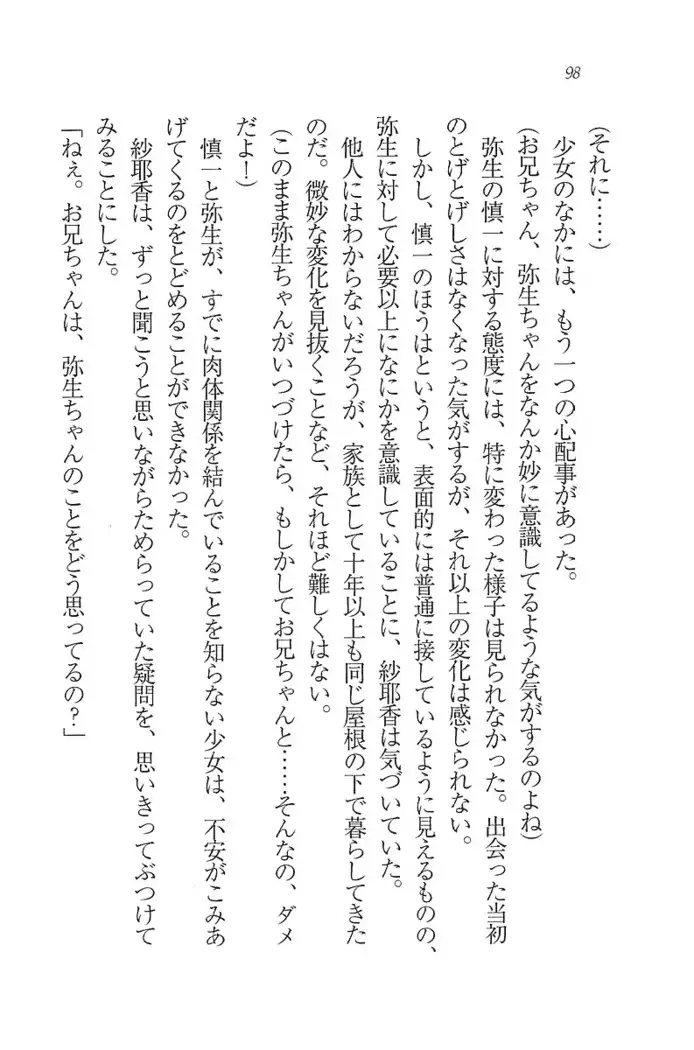 98
(それに……)
少女のなかには、もう一つの心配事があった。
(お兄ちゃん、弥生ちゃんをなんか妙に意識してるような気がするのよね)
弥生の慎一に対する態度には、特に変わった様子は見られなかった。出会った当初
のとげとげしさはなくなった気がするが、それ以上の変化は感じられない。
しかし、慎一のほうはというと、表面的には普通に接しているように見えるものの、
弥生に対して必要以上になにかを意識していることに、紗耶香は気づいていた。
他人にはわからないだろうが、家族として十年以上も同じ屋根の下で暮らしてきた
のだ。微妙な変化を見抜くことなど、それほど難しくはない。
(このまま弥生ちゃんがいつづけたら、もしかしてお兄ちゃんと……そんなの、ダメ
だよ!)
慎一と弥生が、すでに肉体関係を結んでいることを知らない少女は、不安がこみあ
げてくるのをとどめることができなかった。
紗耶香は、ずっと聞こうと思いながらためらっていた疑問を、思いきってぶつけて
みることにした。
「ねぇ。お兄ちゃんは、弥生ちゃんのことをどう思ってるの?」